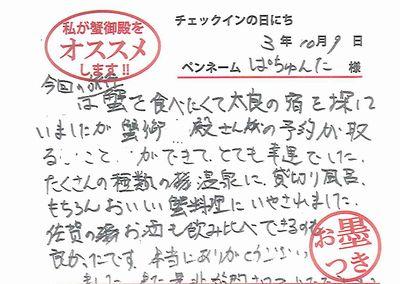 私が蟹御殿を
オススメ
します!!
チェックインの日にち
3年10月9日
ペンネーム ぱちゅんた 様
今回の旅
は蟹を食べたくて太良の宿を探して
いましたが蟹御殿さんの予約が取
ることができて、とても幸運でした。
たくさんの種類の 温泉に、貸切り風呂、
もちろんおいしい蟹料理にいやされました。
佐賀の お酒も飲み比べできるのも
良かったです。本当にありがとうござい
お墨
つき